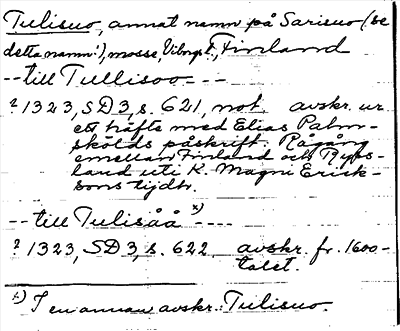 Tulisuo, annat namn på Sarisuo (se
detta namn!), mosse, Vibg l., Finland
-- till Tullisoo - - -
? 1323, SD 3, s. 621, not. avskr. ur
ett häfte med Elias Palm-
skölds påskrift: Rågång
emellan Finland och Ryss-
land uti K. Magni Erick-
sons tijdh.
-- till Tulisåå x) ----
? 1323, SD 3, s. 622 avskr. fr. 1600-
talet.
x) I en annan avskr.: Tulisuo.